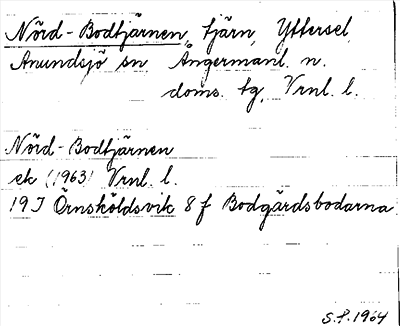 Nörd-Bodtjärnen, tjärn, Yttersel,
Anundsjö sn Ångermanl. n.
doms. tg, Vrnl. l.
Nörd-Bodtjärnen
ek (1963) Vrnl. l.
19 I Örnsköldsvik 8 f Bodgårdsbodarna
S.F. 1964